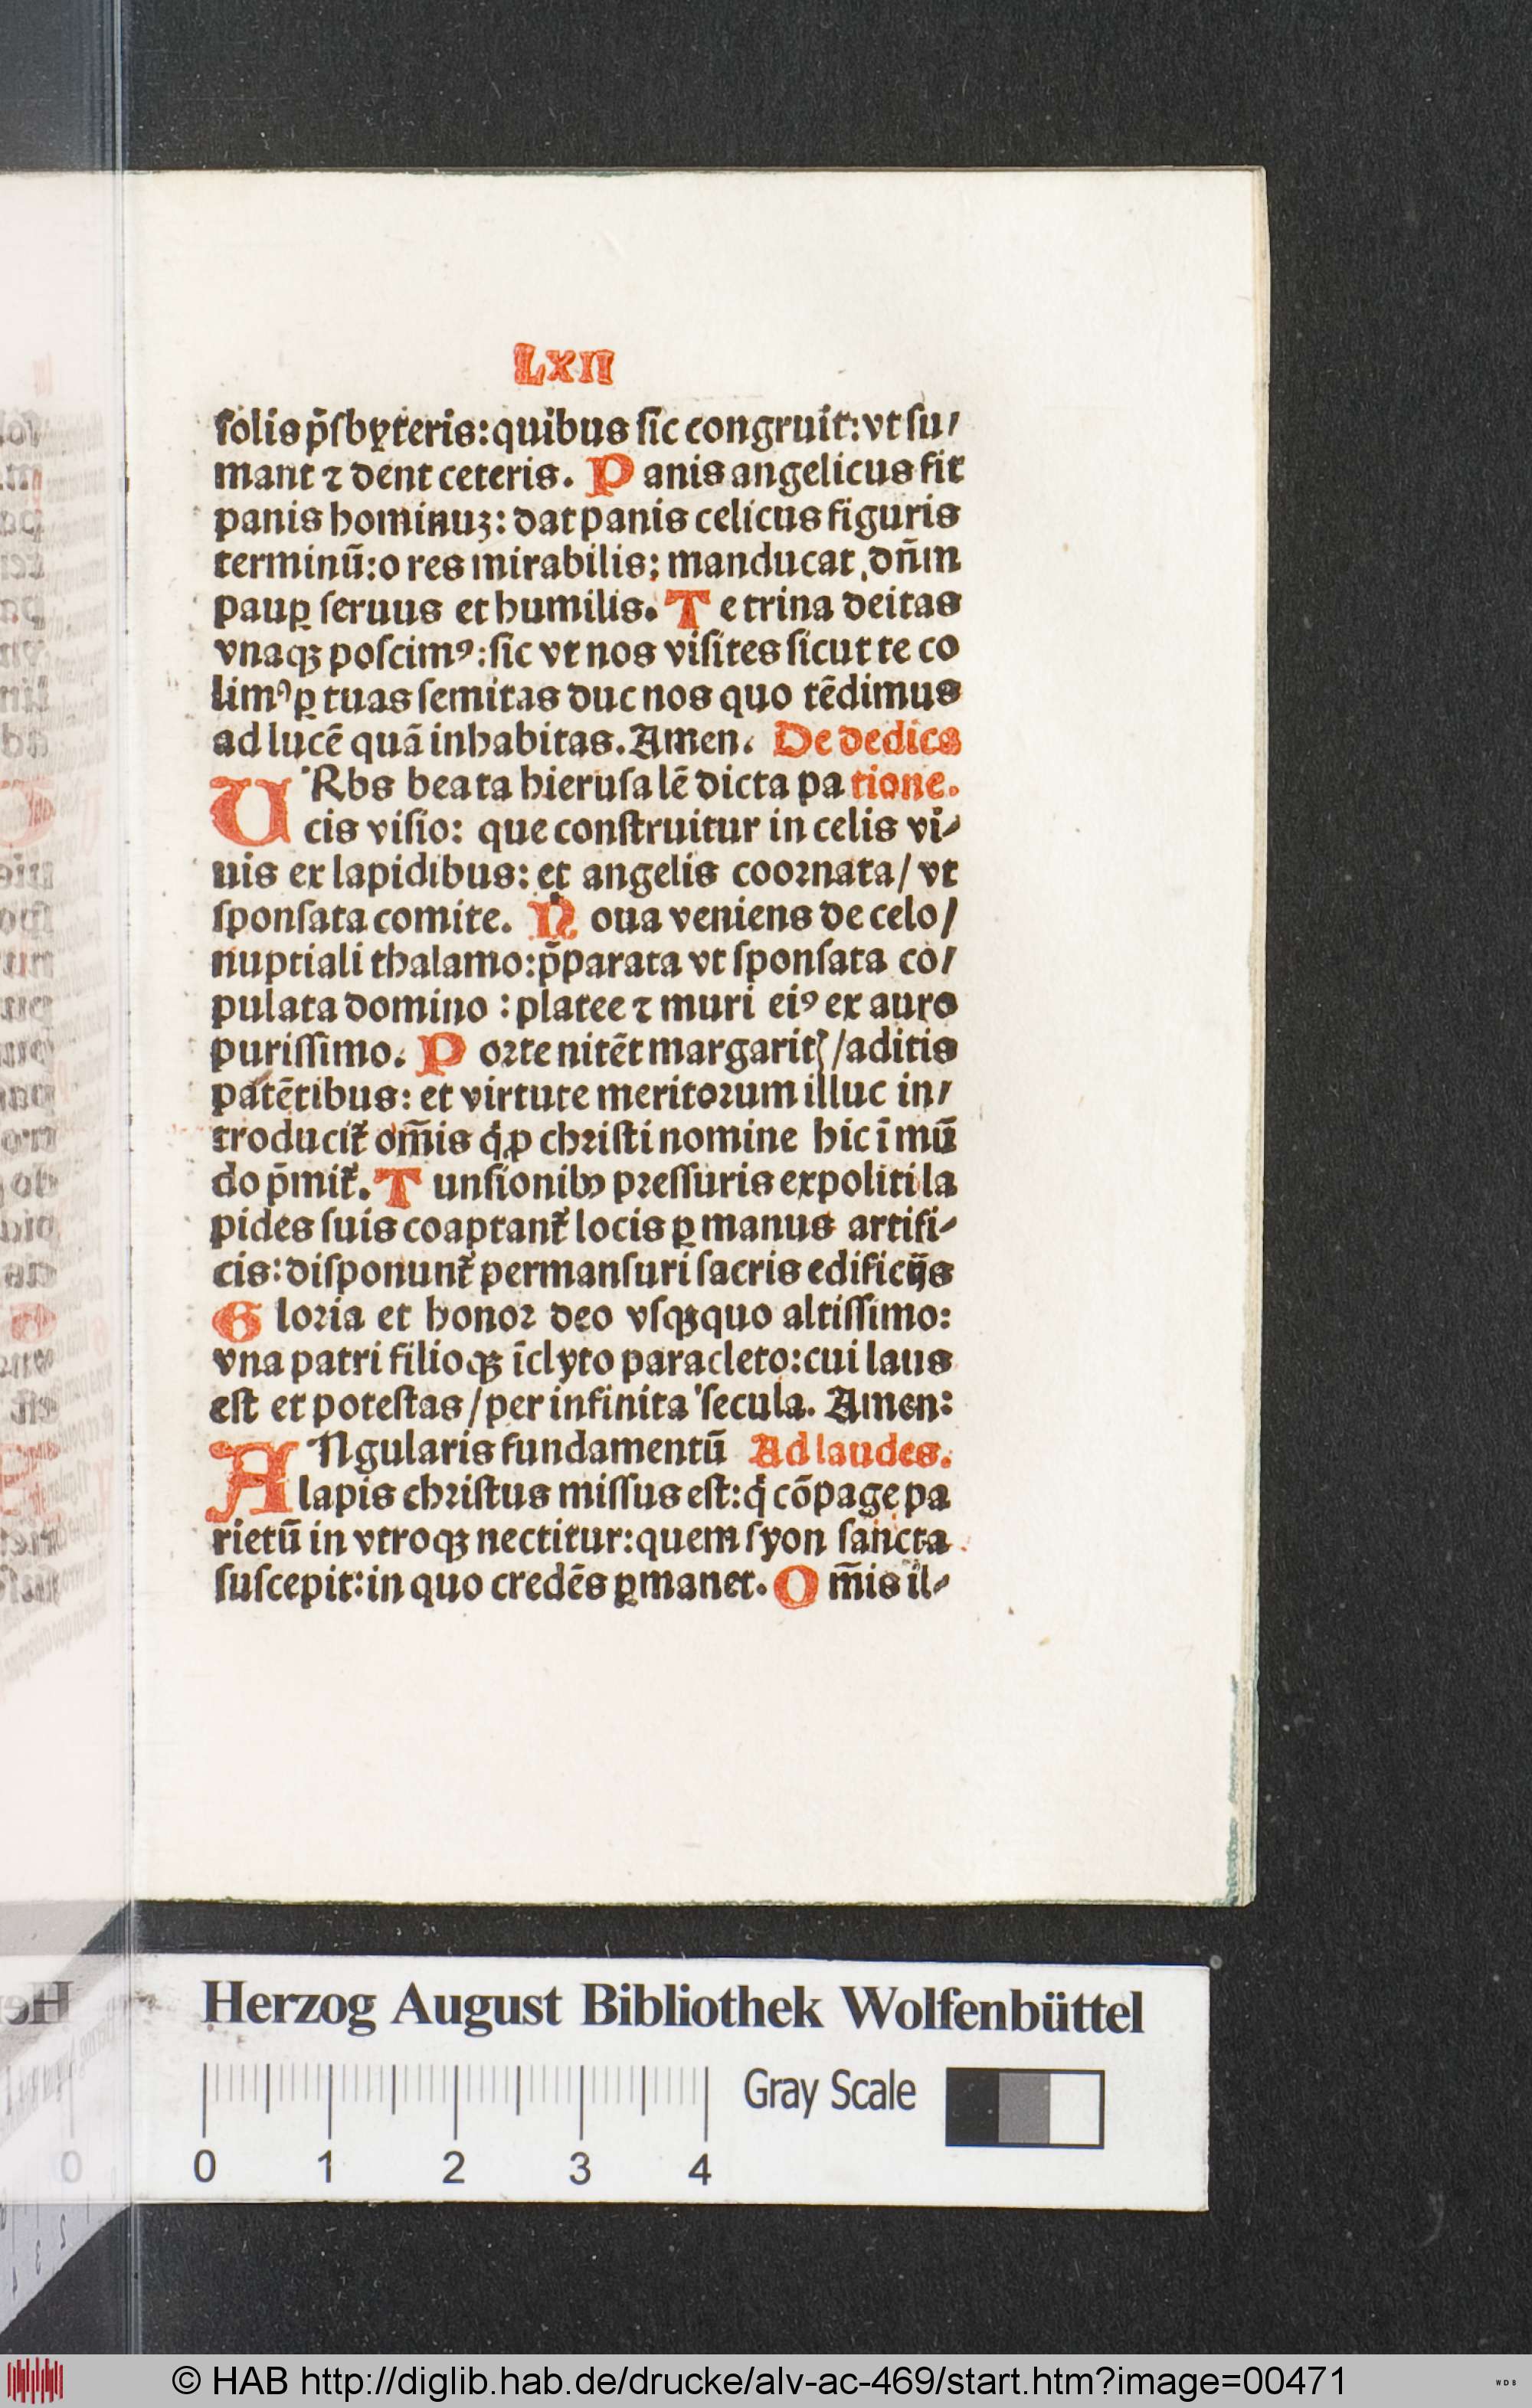 LXII
ſolis p̄ſbyteris: quibus ſic congruit: vt ſu/
mant ⁊ dent ceteris. Panis angelicus fit
panis hominuꝫ: dat panis celicus figuris
terminū: o res mirabilis: manducat dn̄m
pauꝑ ſeruus et humilis. Te trina deitas
vnaqꝫ poſcimꝰ: ſic vt nos viſites ſicut te co
limꝰ ꝑ tuas ſemitas duc nos quo tēdimus
ad lucē quā inhabitas. Amen. De dedica
URbs beata hieruſalē dicta pa tione.
cis viſio: que conſtruitur in celis vi/
uis ex lapidibus: et angelis coꝛnata / vt
ſponſata comite. Noua veniens de celo /
nuptiali thalamo: p̄parata vt ſponſata co/
pulata domino : platee ⁊ muri eiꝰ ex auro
puriſſimo. Poꝛte nitēt margaritꝭ / aditis
patētibus: et virtute meritoꝛum illuc in/
troducit᷑ om̄is q̇ ꝓ chꝛiſti nomine hic ī mū
do p̄mit᷑. Tunſionibꝫ pꝛeſſuris expoliti la
pides ſuis coaptant᷑ locis ꝑ manus artifi/
cis: diſponunt᷑ permanſuri ſacris edificijs
Gloꝛia et honoꝛ deo vſqꝫquo altiſſimo:
vna patri filioqꝫ īclyto paracleto: cui laus
eſt et poteſtas / per infinita ſecula. Amen:
ANgularis fundamentū Ad laudes.
lapis chꝛiſtus miſſus eſt: q̇ cōpage pa
rietū in vtroqꝫ nectitur: quem ſyon ſancta
ſuſcepit: in quo credēs ꝑmanet. Om̄is il/
Herzog August Bibliothek Wolfenbüttel
Gray Scale
0 1 2 3 4
© HAB http://diglib.hab.de/drucke/alv-ac-469/start.htm?image=00471